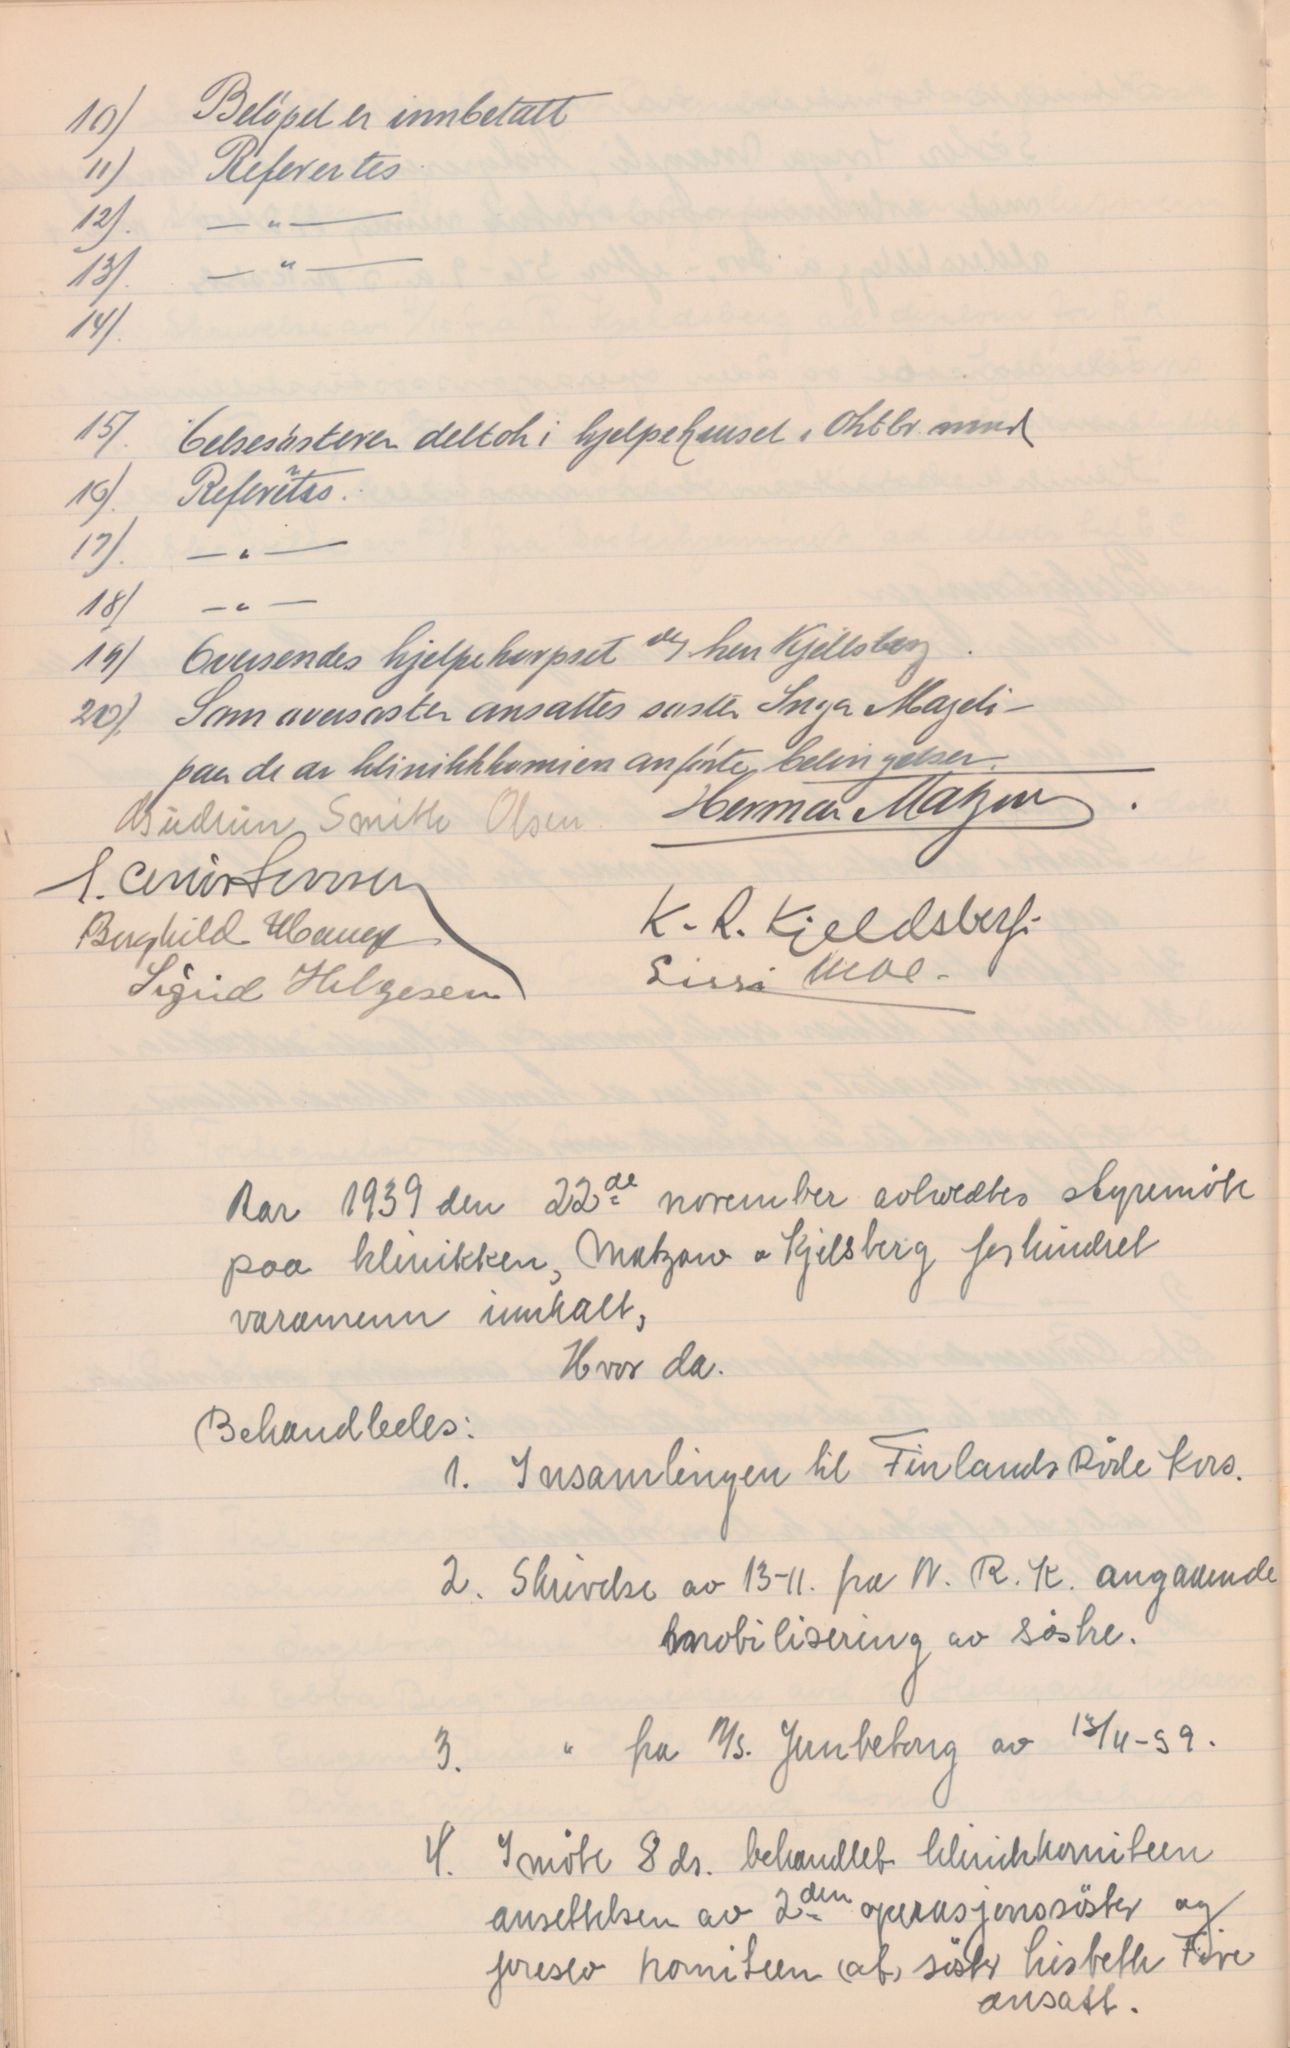 10) Beløpet er innbetalt
11) Referertes
12). — " —
13). — " —
14).
15). Helsesøsteren deltok i hjelpekurset i Oktbr. mnd
16). Refertes.
17). — " —
18) — " —
19) Oversendes hjelpekorpset v/ herr Kjeldsberg.
20). Som oversøster ansattes søster Inga Mageli -
paa de av klinikkkomien anførte betingelser.
Gudrun Smith Olsen Herman Matzow.
Borghild Haug K. R. Kjeldsberg.
Sigrid Helgesen Sissi Moe -
Aar 1939 den 22de november avholdtes styremöte
paa klinikken, Matzow o Kjelsberg forhindret
varamenn innkalt,
Hvor da.
Behandledes:
1. Insamlingen til Finlands Röde Kors.
2. Skrivelse av 13-11. fra N. R. K. angaaende
mobilisering av söstre.
3. " fra A/s. Jernbetong av 13/11-39.
4. I möte 8 ds. behandlet klinikkomiteen
ansettelsen av 2den operasjonssöster og
foreslo komiteen (at) söster Lisbeth Five
ansatt.